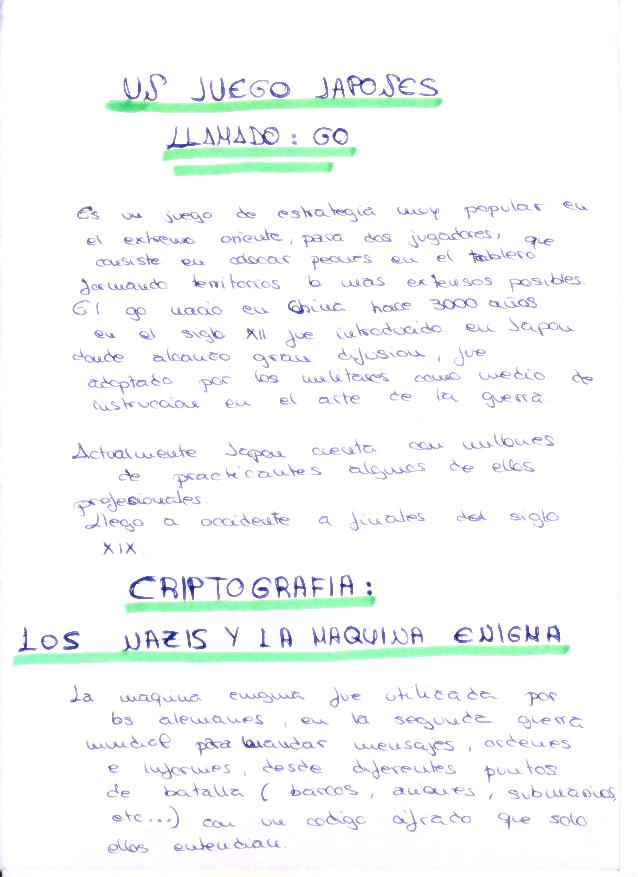 UN JUEGO JAPONES
LLAMADO: GO
Es un juego de estrategia muy popular en
el extremo oriente, para dos jugadores, que
consiste en colocar peones en el tablero
formando territorios lo mas extensos posibles.
El go nacio en China hace 3000 años
en el siglo XII fue introducido en Japon
donde alcanzo gran difusion, fue
adoptado por los militares como medio de
instruccion en el arte de la guerra.
Actualmente Japon cuenta con millones
de practicantes algunos de ellos
profesionales.
Llego a occidente a finales del siglo
XIX.
CRIPTOGRAFIA:
LOS NAZIS Y LA MAQUINA ENIGMA
La maquina enigma fue utilizada por
los alemanes, en la segunda guerra
mundial para mandar mensajes, ordenes
e informes, desde diferentes puntos
de batalla (barcos, aviones, submarinos,
etc...) con un codigo cifrado que solo
ellos entendian.